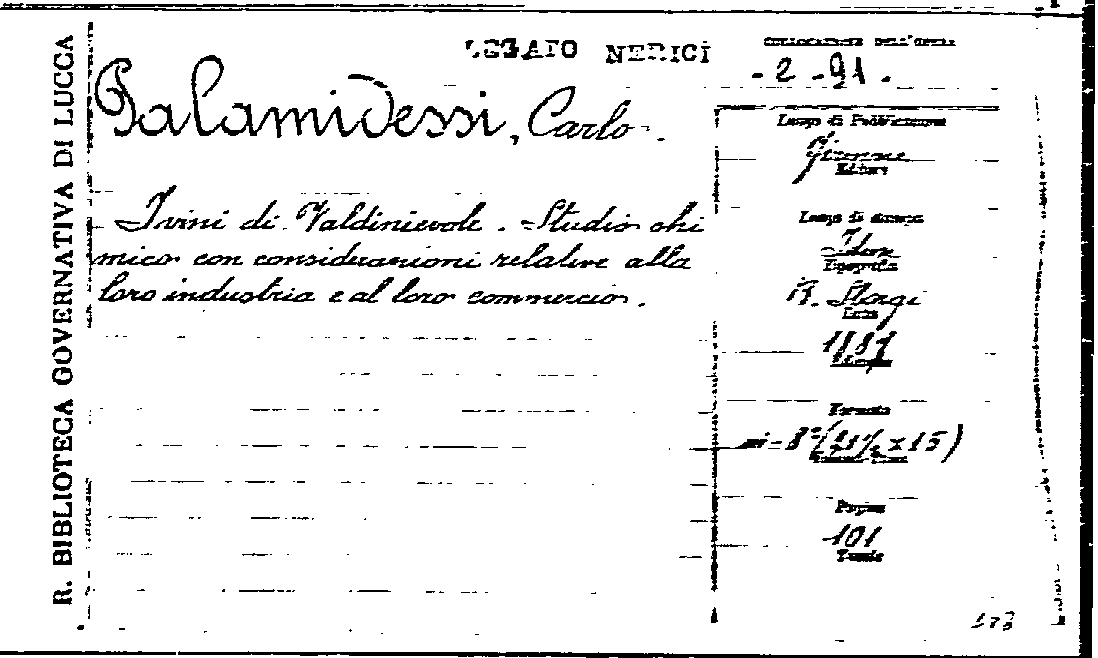 R. BIBLIOTECA GOVERNATIVA DI LUCCA
LEGATO NERICI
COLLOCAZIONE DELL'OPERA
- 2 - 91 .
Palamidessi, Carlo .
I vini di Valdinievole . Studio chi
mico con considerazioni relative alla
loro industria e al loro commercio .
Luogo di Pubblicazione
Firenze
Editore
Luogo di stampa
Idem
Tipografia
Data
Formato
in-8° x 15)
Pagine
101
Tavole